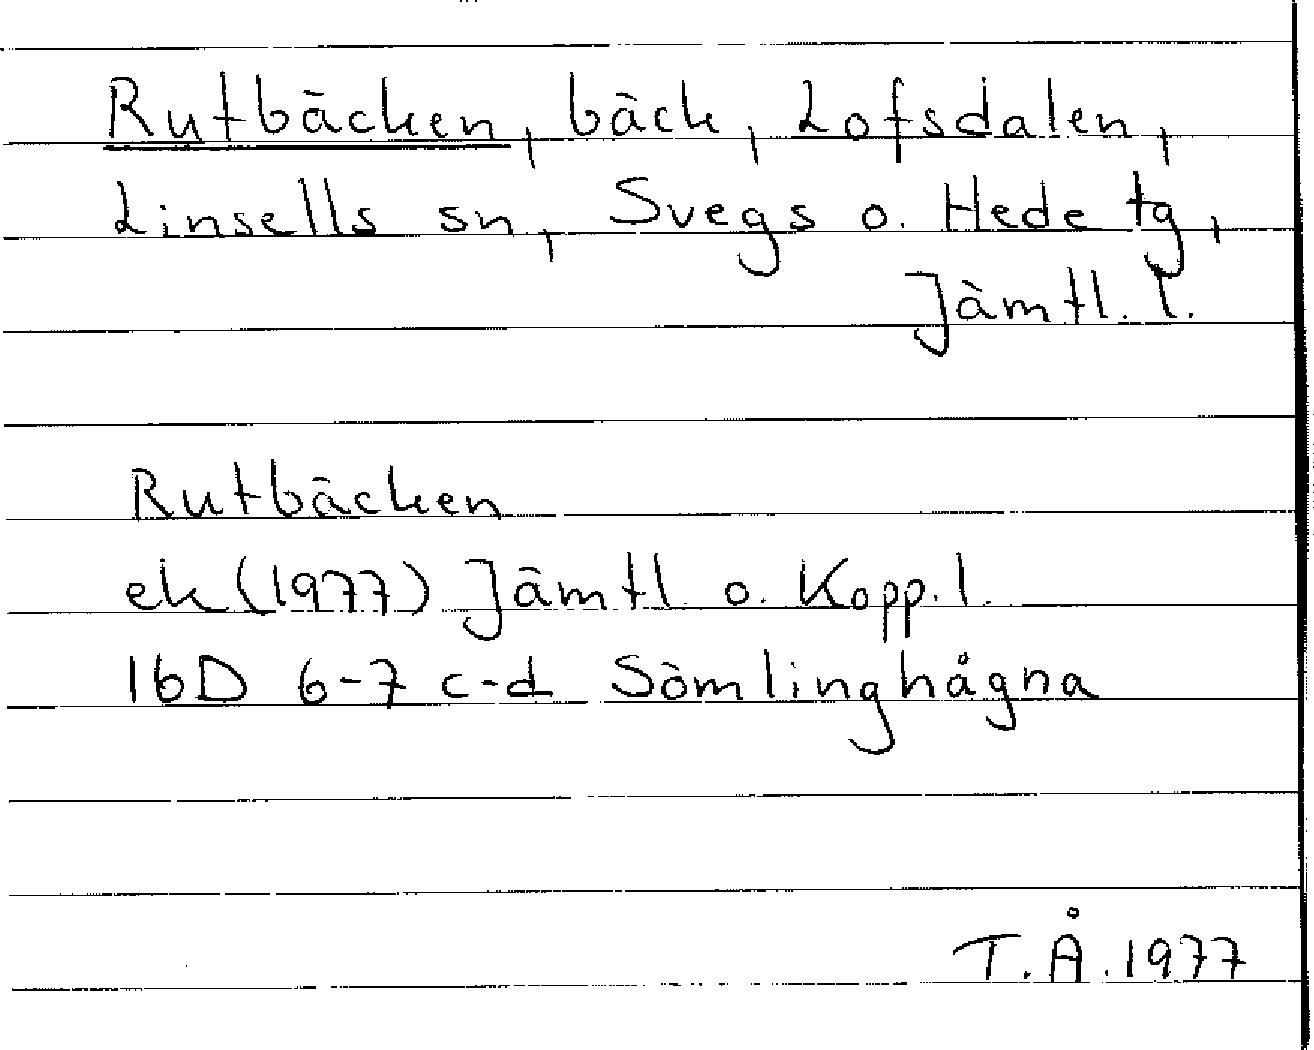 Rutbäcken, bäck, Lofsdalen,
Linsells sn, Svegs o. Hede tg,
Jämtl. l.
Rutbäcken
ek (1977) Jämtl o. Kopp. l.
16D 6-7 c-d Sömlinghågna
T.Å. 1977